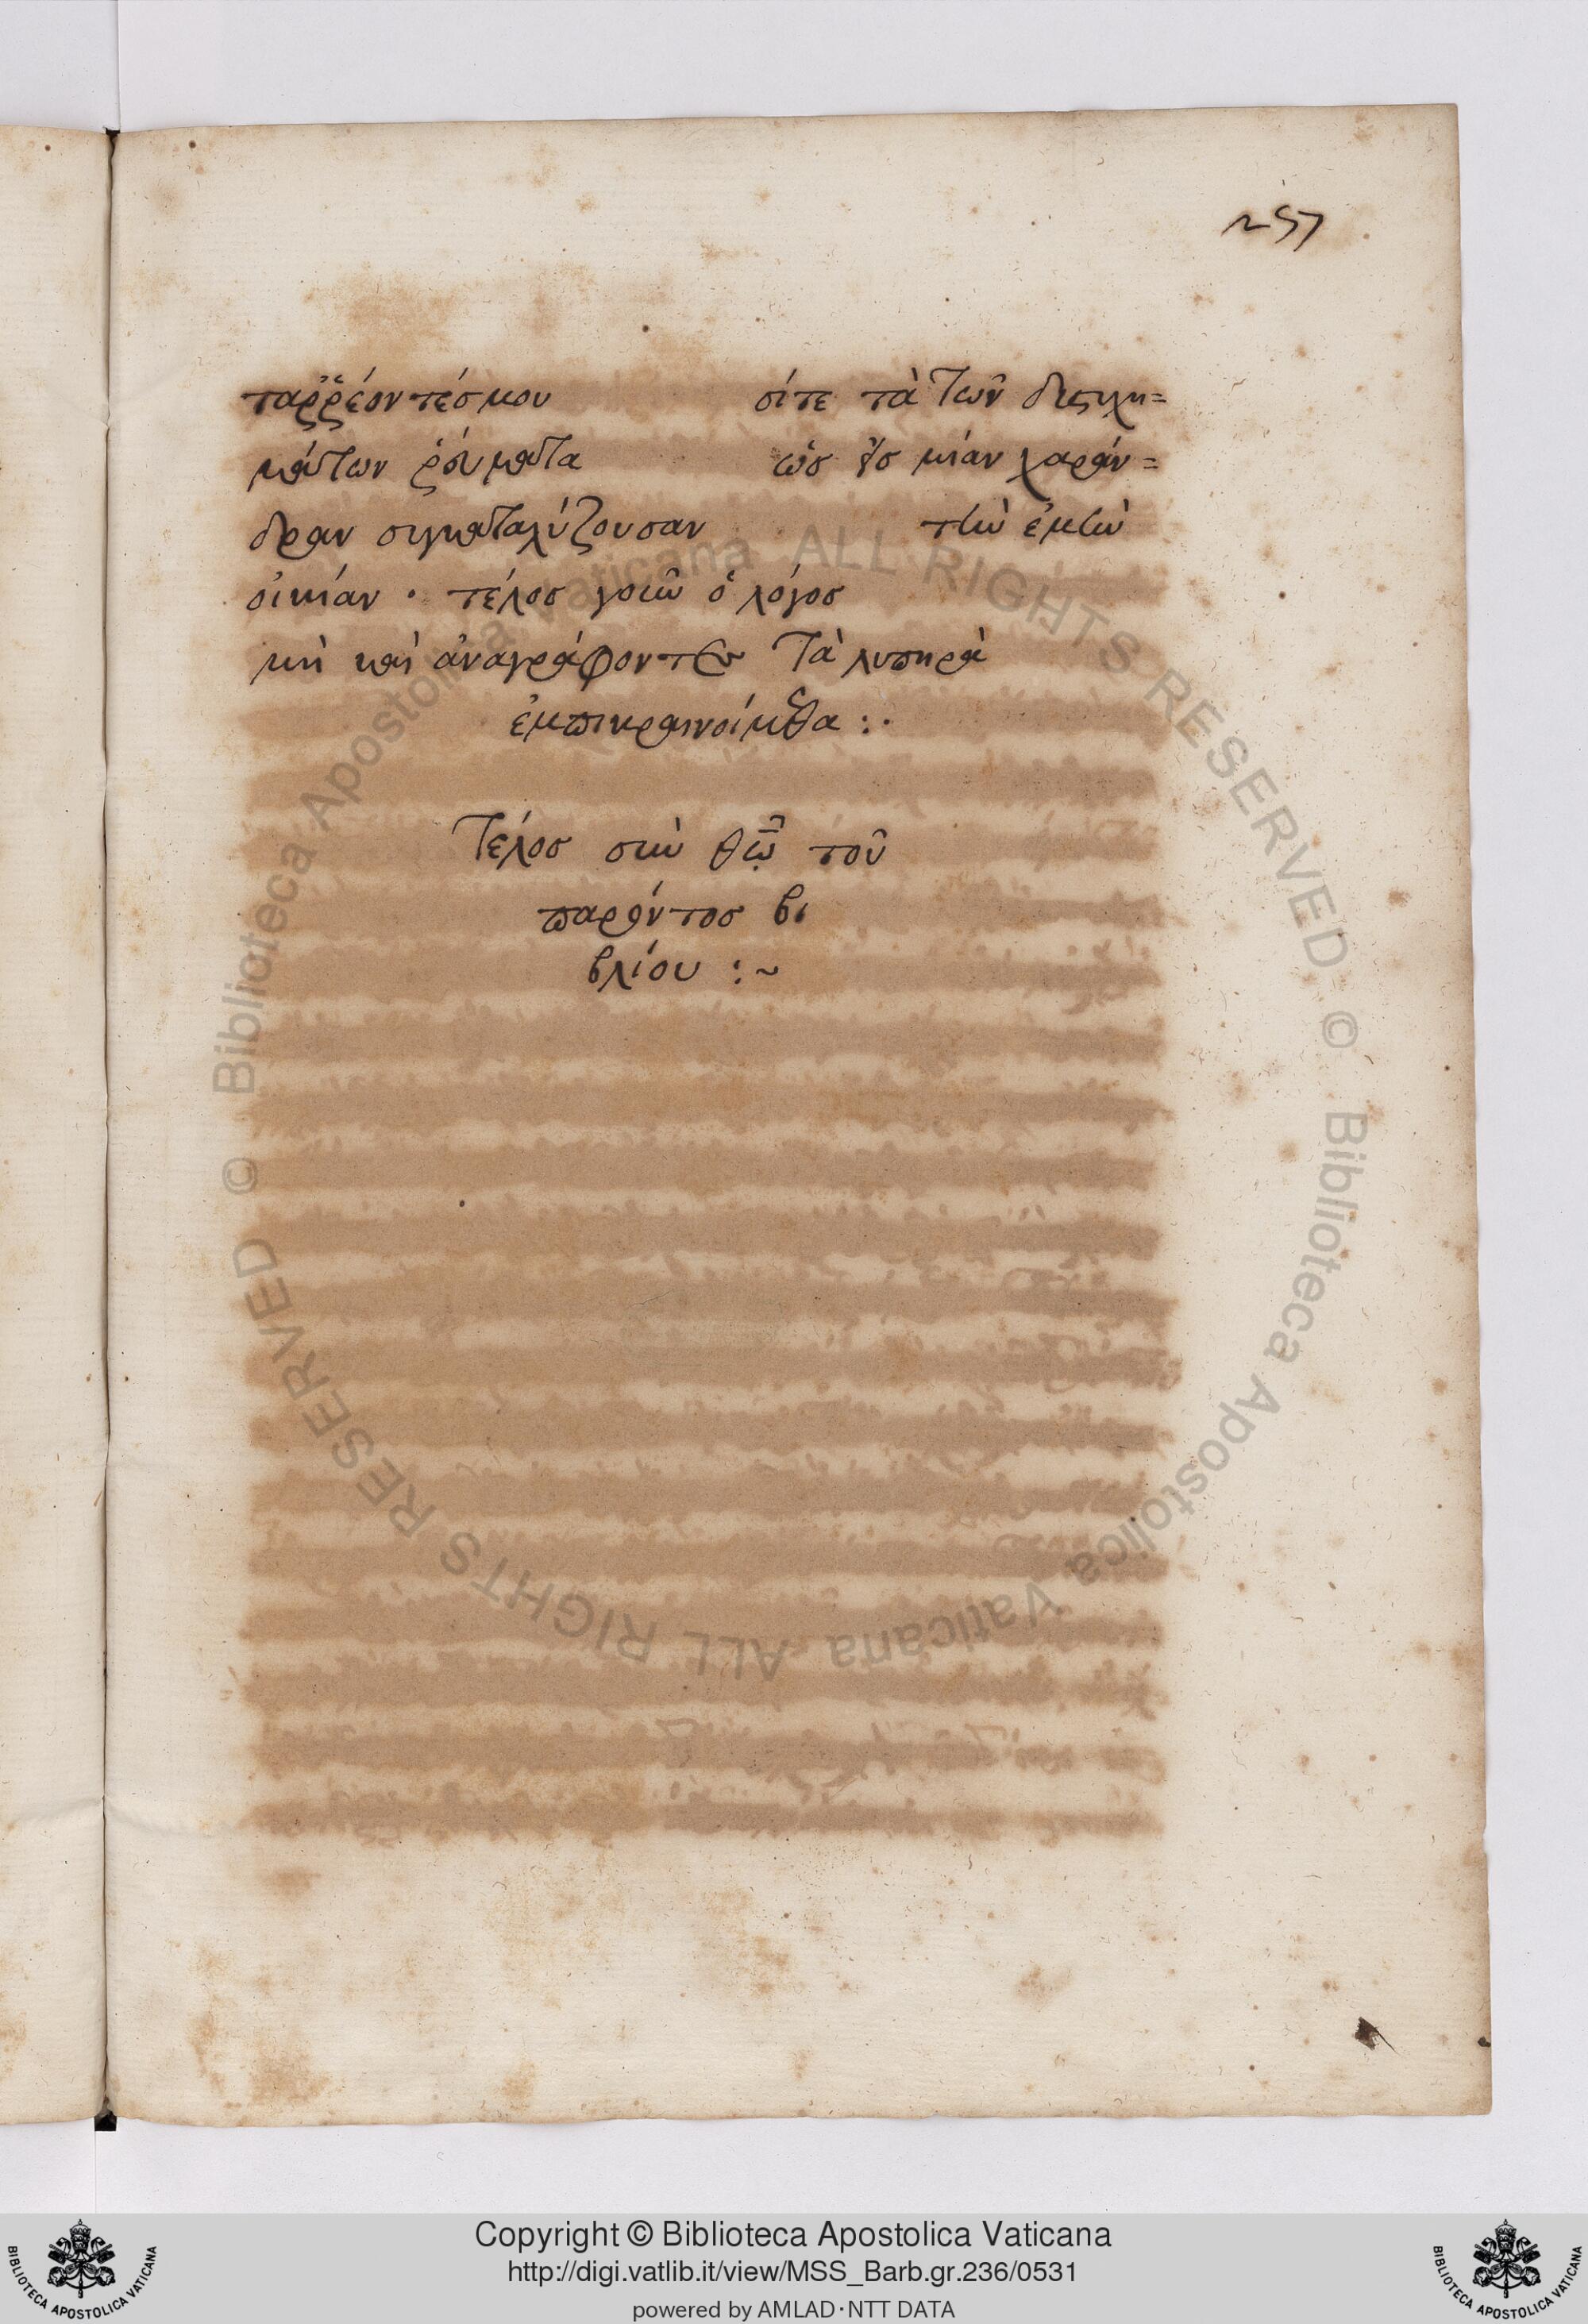 257
ταῤῥέοντέσ μου σίτε τὰ τῶν δυστυχη=
μάτων ῥεύματα ὡσ εἰσ μίαν χαράν=
δραν συγκαταλύζουσαν τὴν ἐμὴν
οἰκίαν · τέλοσ γοῦν ὁ λόγοσ
μὴ καὶ ἀναγράφοντεσ τὰ λυπηρὰ
ἐμπικραινοίμεθα :·
Τέλοσ σὺν θῶ τοῦ
παρόντοσ βι
βλίου :~
© Biblioteca Apostolica Vaticana ALL RIGHTS RESERVED
© Biblioteca Apostolica Vaticana ALL RIGHTS RESERVED
Copyright © Biblioteca Apostolica Vaticana
http://digi.vatlib.it/view/MSS_Barb.gr.236/0531
powered by AMLAD·NTT DATA
BIBLIOTECA APOSTOLICA VATICANA
BIBLIOTECA APOSTOLICA VATICANA